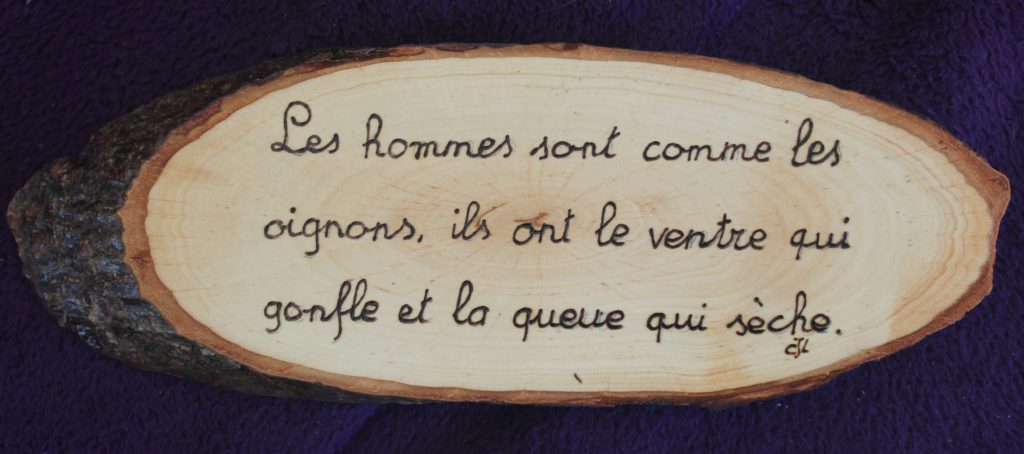 Les hommes sont comme les
oignons, ils ont le ventre qui
gonfle et la queue qui sèche.